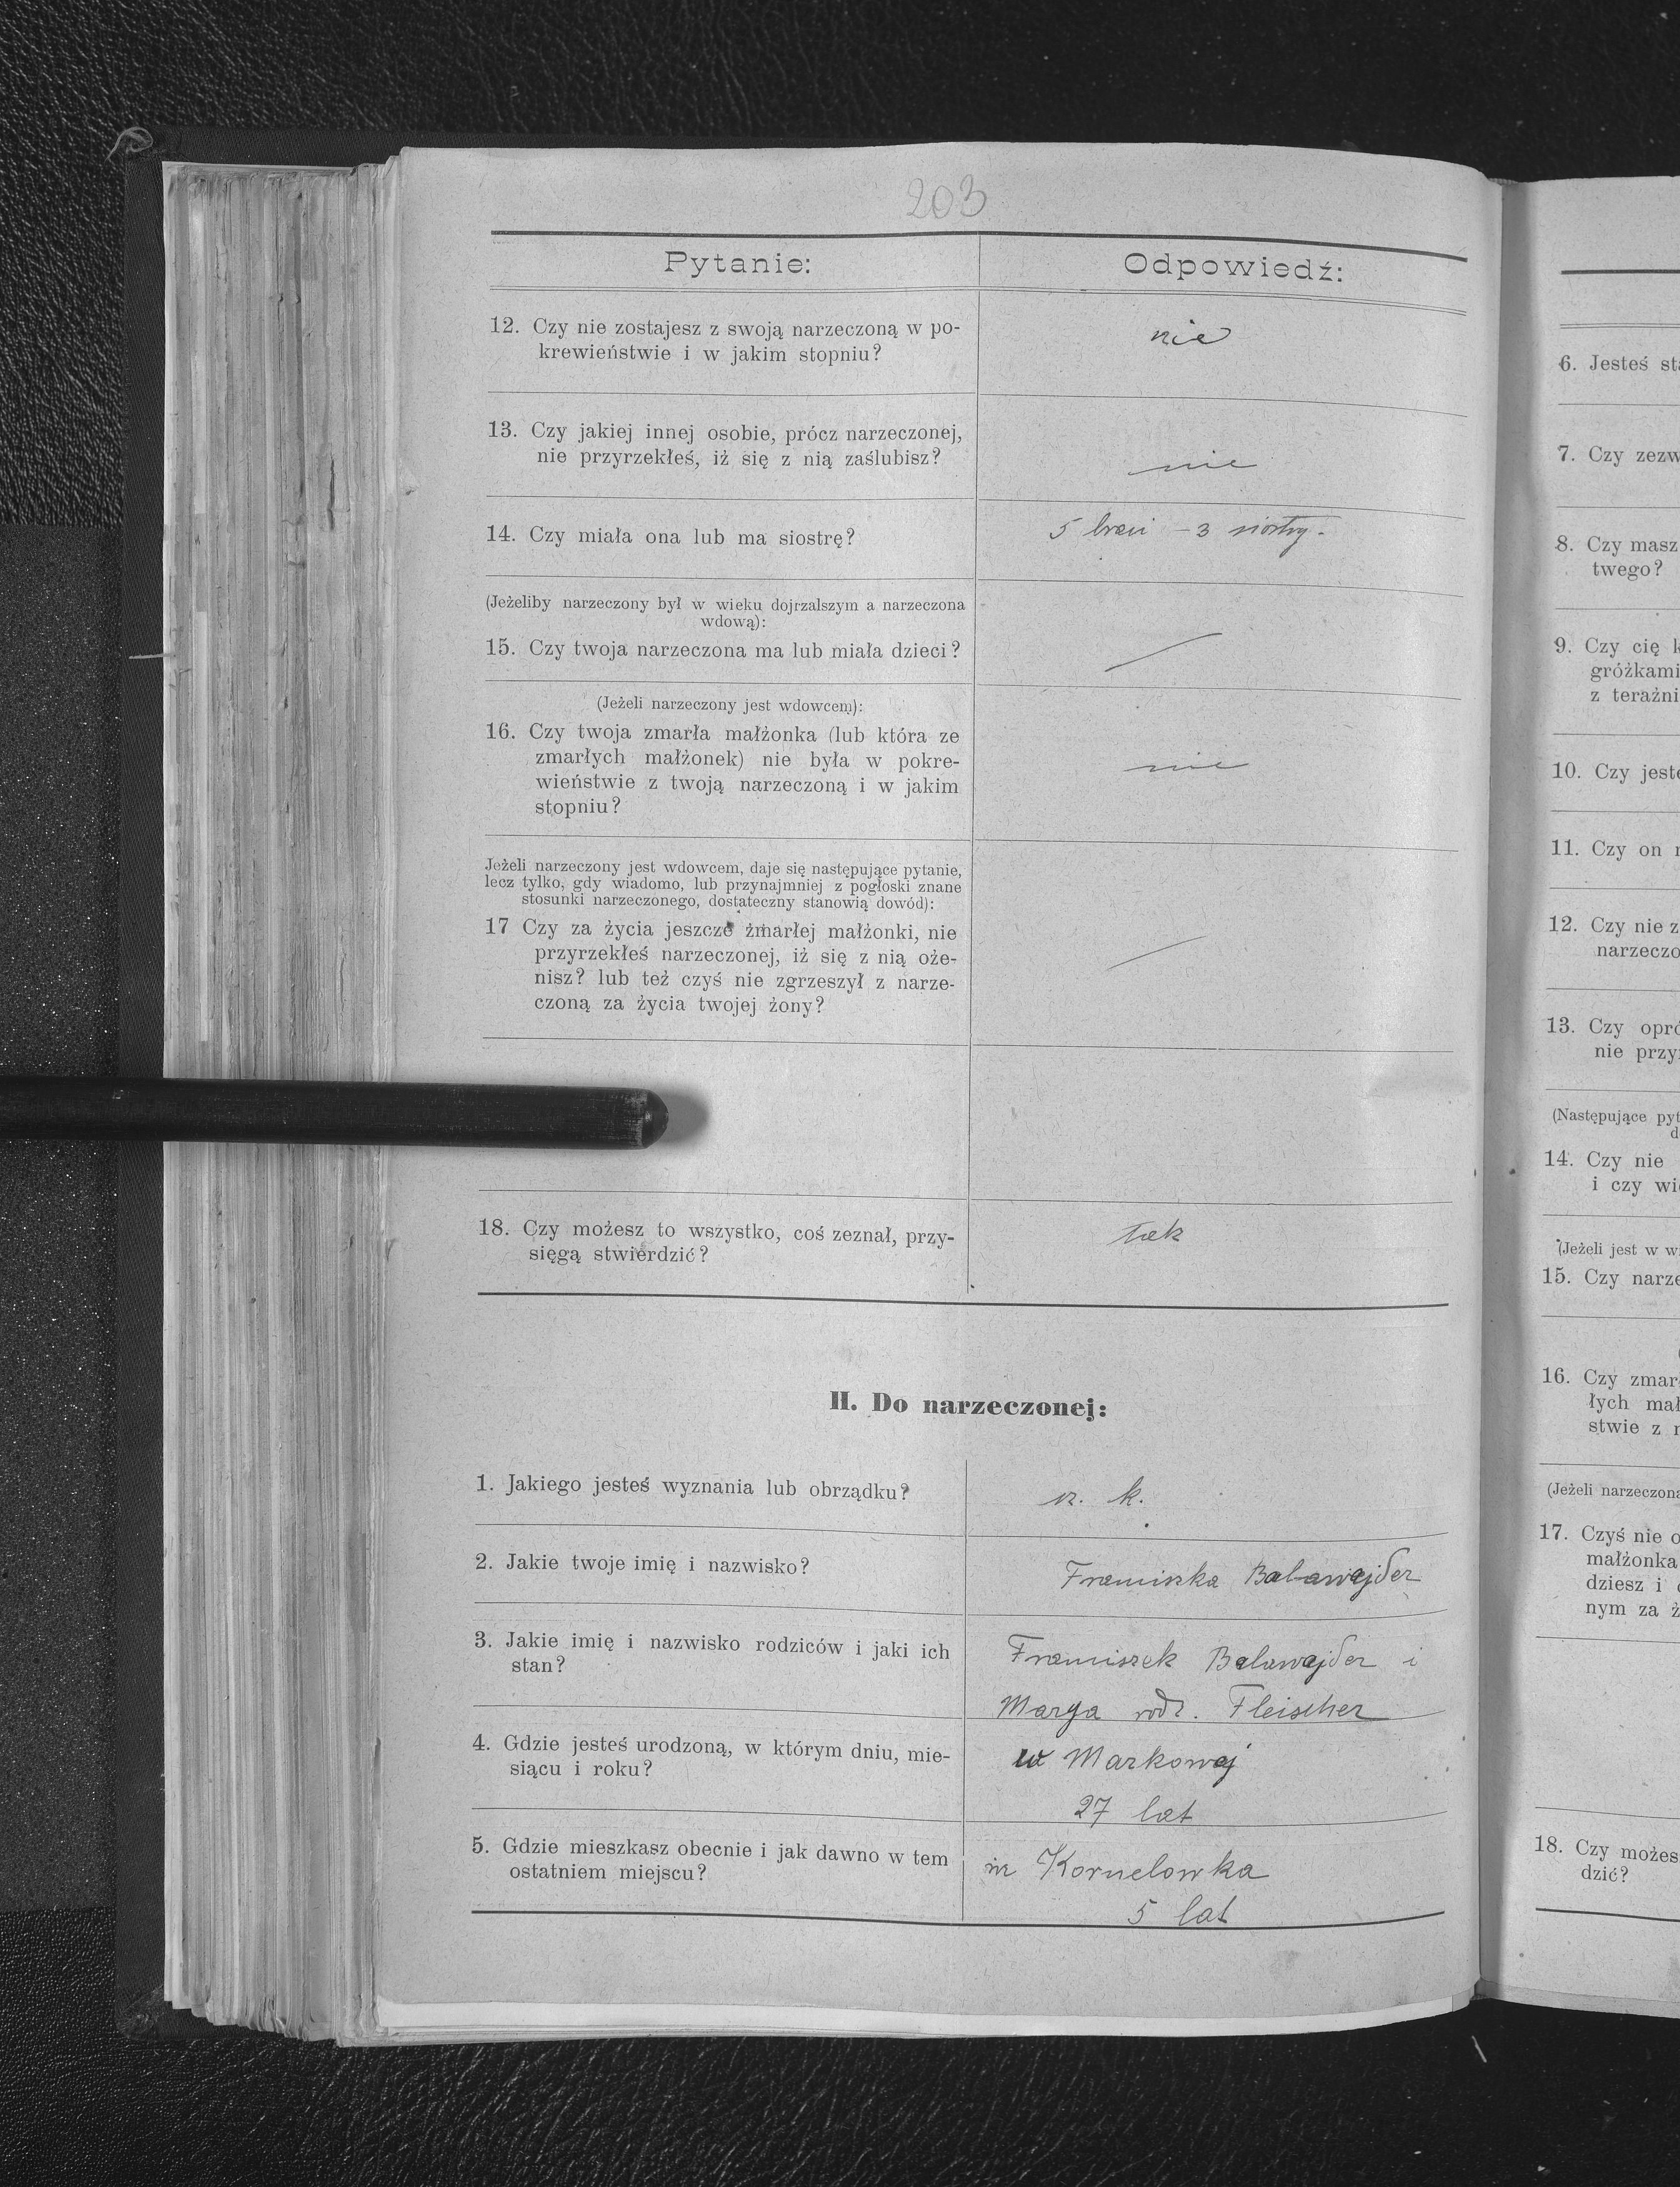 203
Pytanie:
Odpowiedź:
12. Czy nie zostajesz z swoją narzeczoną w po-
krewieństwie i w jakim stopniu?
nie
13. Czy jakiej innej osobie, prócz narzeczonej,
nie przyrzekłeś, iż się z nią zaślubisz?
nie
14. Czy miała ona lub ma siostrę?
5 braci – 3 siostry.
(Jeżeliby narzeczony był w wieku dojrzalszym a narzeczona
wdową):
15. Czy twoja narzeczona ma lub miała dzieci?
(Jeżeli narzeczony jest wdowcem):
16. Czy twoja zmarła małżonka (lub która ze
zmarłych małżonek) nie była w pokre-
wieństwie z twoją narzeczoną i w jakim
stopniu?
nie
Jeżeli narzeczony jest wdowcem, daje się następujące pytanie,
lecz tylko, gdy wiadomo, lub przynajmniej z pogłoski znane
stosunki narzeczonego, dostateczny stanowią dowód):
17 Czy za życia jeszcze żmarłej małżonki, nie
przyrzekłeś narzeczonej, iż się z nią oże-
nisz? lub też czyś nie zgrzeszył z narze-
czoną za życia twojej żony?
18. Czy możesz to wszystko, coś zeznał, przy-
sięgą stwierdzić?
tak
II. Do narzeczonej:
1. Jakiego jesteś wyznania lub obrządku?
r. k.
2. Jakie twoje imię i nazwisko?
Franciszka Balawajder
3. Jakie imię i nazwisko rodziców i jaki ich
stan?
Franciszek Balawajder i
Marya rodz. Fleischer
4. Gdzie jesteś urodzoną, w którym dniu, mie-
siącu i roku?
w Markowej
27 lat
5. Gdzie mieszkasz obecnie i jak dawno w tem
ostatniem miejscu?
Kornelowka
5 lat
6. Jesteś sta
7. Czy zezw
8. Czy masz
twego?
9. Czy cię k
gróżkami
z teraźni
10. Czy jeste
11. Czy on
12. Czy nie z
narzeczo
13. Czy opró
nie przy
(Następujące pyt
d
14. Czy nie
i czy wi
(Jeżeli jest w w
15. Czy narze
16. Czy zmar
łych mał
stwie z
(Jeżeli narzeczona
17. Czyś nie o
małżonka
dziesz i
nym za ż
18. Czy możes
dzić?